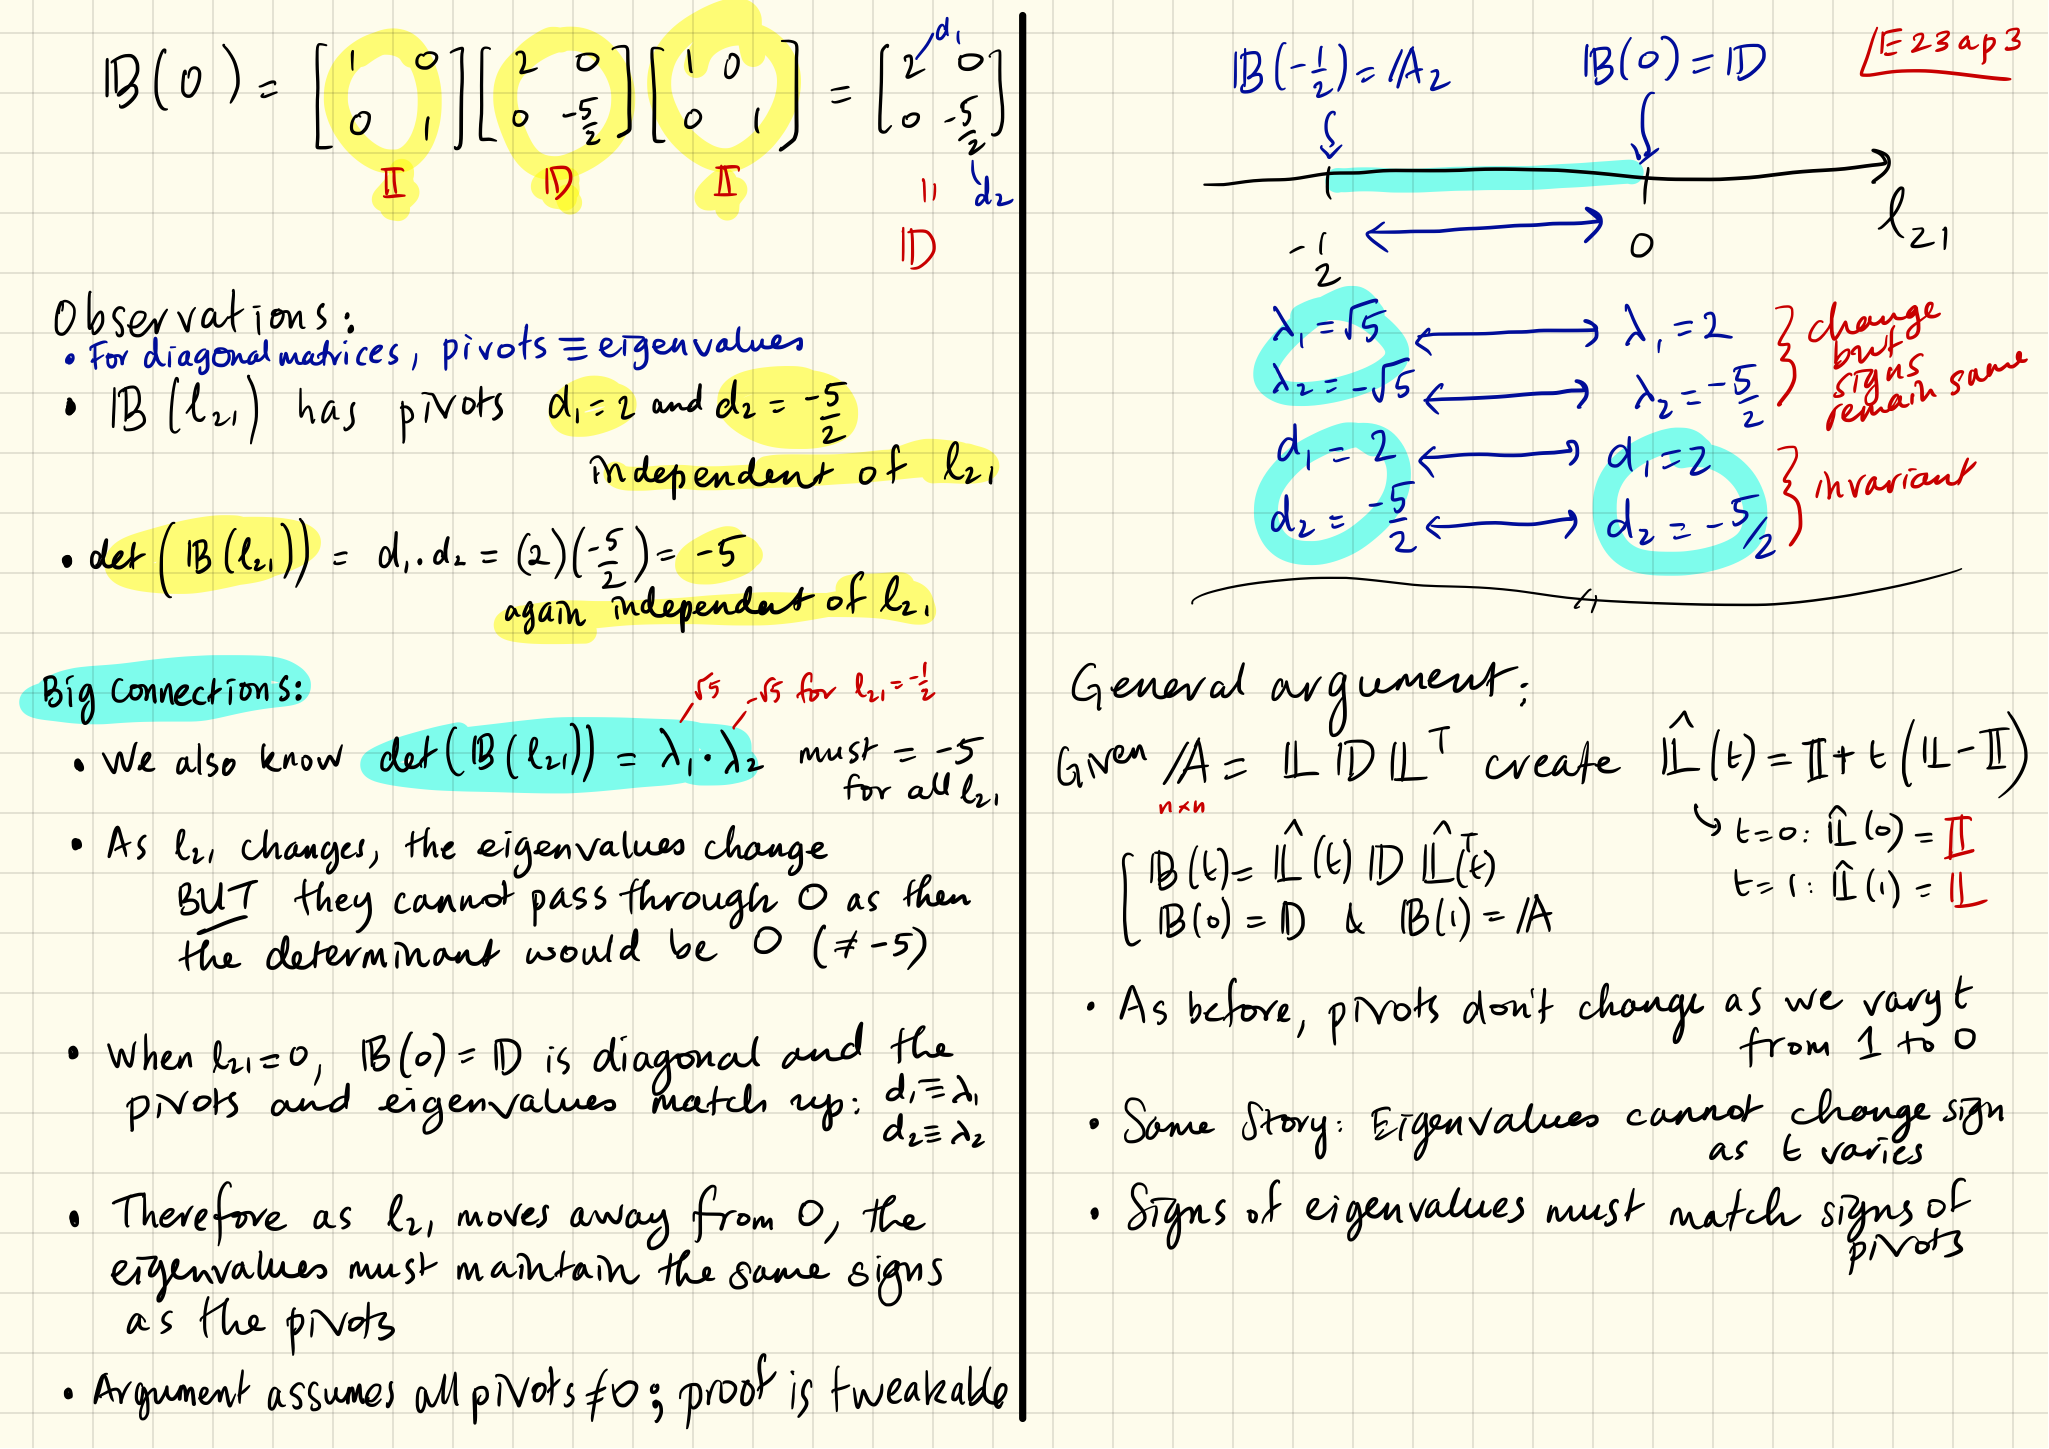 𝔹(0) = [1 0; 0 1] [2 0; 0 -5/2] [1 0; 0 1] = [2 0; 0 -5/2]
d₁
𝕀 𝔻 𝕀
d₂
=
𝔻
Observations:
• For diagonal matrices, pivots ≡ eigenvalues
• 𝔹(l₂₁) has pivots d₁ = 2 and d₂ = -5/2
independent of l₂₁
• det(𝔹(l₂₁)) = d₁·d₂ = (2)(-5/2) = -5
again independent of l₂₁
Big Connections:
√5 -√5 for l₂₁ = -1/2
• We also know det(𝔹(l₂₁)) = λ₁·λ₂ must = -5
for all l₂₁
• As l₂₁ changes, the eigenvalues change
BUT they cannot pass through 0 as then
the determinant would be 0 (≠ -5)
• When l₂₁ = 0, 𝔹(0) = 𝔻 is diagonal and the
pivots and eigenvalues match up: d₁ ≡ λ₁
d₂ ≡ λ₂
• Therefore as l₂₁ moves away from 0, the
eigenvalues must maintain the same signs
as the pivots
• Argument assumes all pivots ≠ 0; proof is tweakable
E23ap3
𝔹(-1/2) = 𝔸₂ 𝔹(0) = 𝔻
-1/2 0 l₂₁
λ₁ = √5 ↔ λ₁ = 2
λ₂ = -√5 ↔ λ₂ = -5/2
change
but
signs
remain same
d₁ = 2 ↔ d₁ = 2
d₂ = -5/2 ↔ d₂ = -5/2
invariant
General argument:
Given 𝔸 = 𝕃𝔻𝕃ᵀ create 𝕃̂(t) = 𝕀 + t(𝕃 - 𝕀)
n×n
t=0: 𝕃̂(0) = 𝕀
t=1: 𝕃̂(1) = 𝕃
𝔹(t) = 𝕃̂(t) 𝔻 𝕃̂ᵀ(t)
𝔹(0) = 𝔻 & 𝔹(1) = 𝔸
• As before, pivots don't change as we vary t
from 1 to 0
• Same Story: Eigenvalues cannot change sign
as t varies
• Signs of eigenvalues must match signs of
pivots